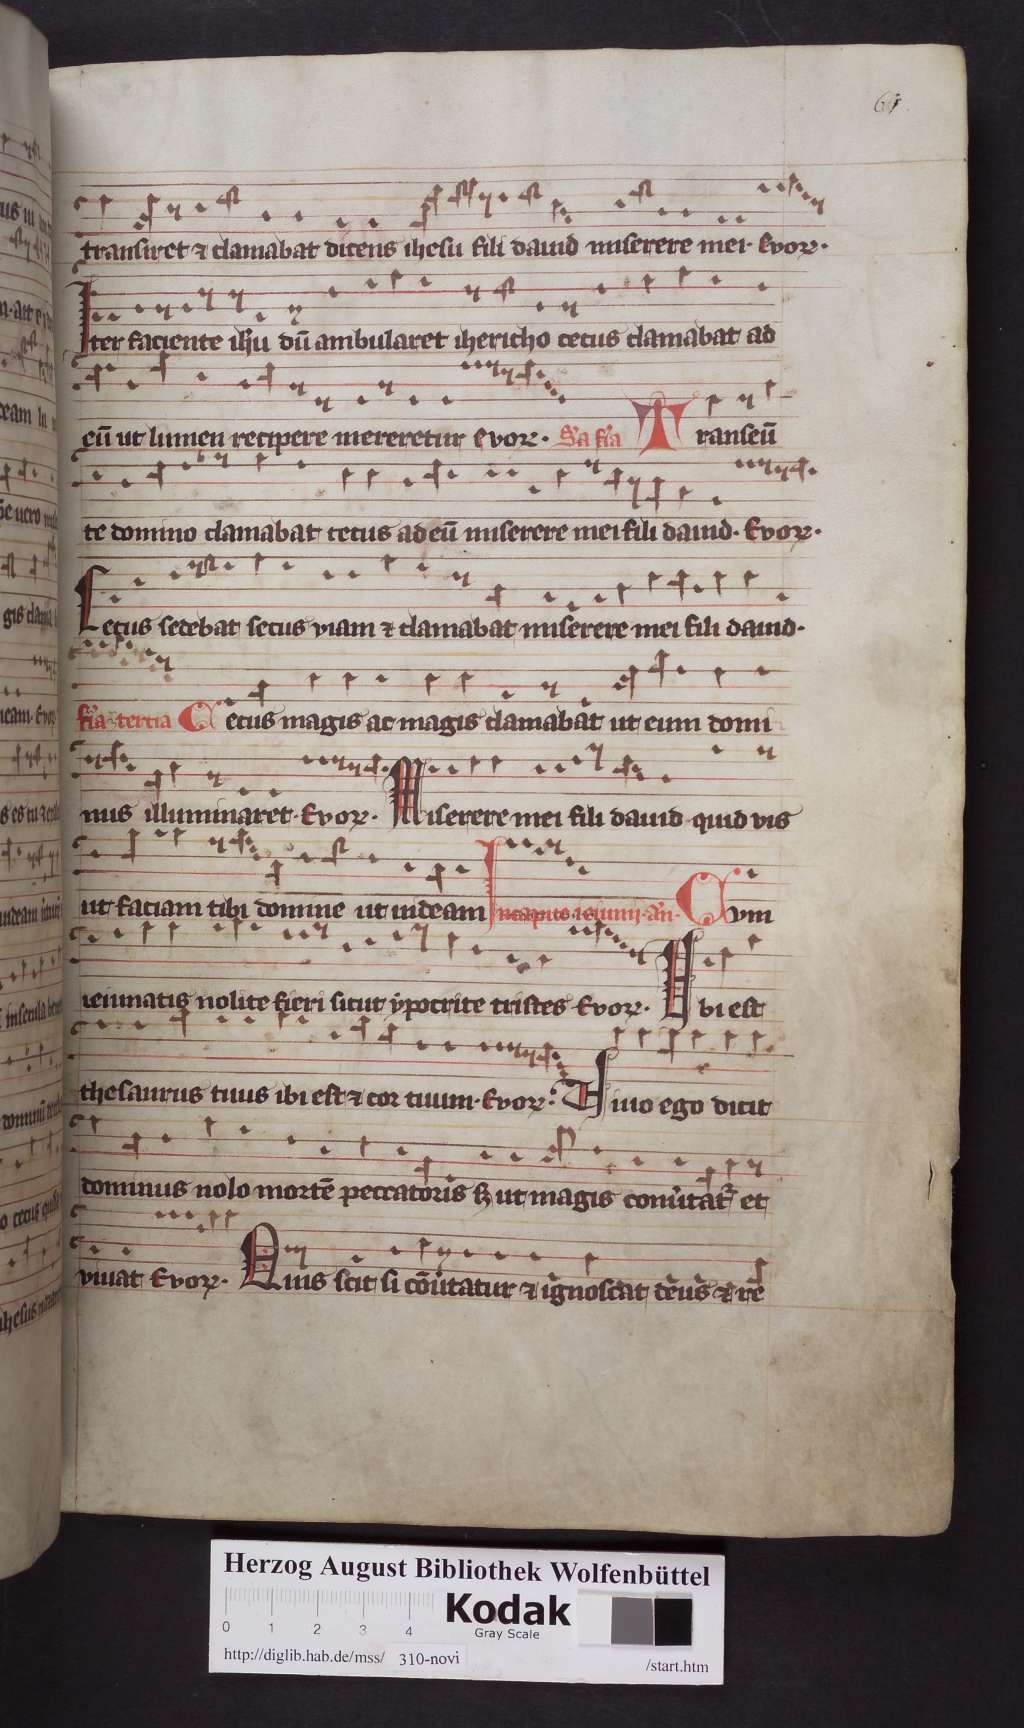 61
transiret ⁊ clamabat dicens ihesu fili dauid miserere mei· Evoꝝ·
Iter faciente ih̄u dū ambularet ihericho cecus clamabat ad
eū ut lumen recipere mereretur evoꝝ· Transeū
te domino clamabat cecus ad eū miserere mei fili dauid· Evoꝝ·
Cecus sedebat secus viam ⁊ clamabat miserere mei fili dauid·
fia tertia Cecus magis ac magis clamabat ut eum domi
nus illuminaret· Evoꝝ· Miserere mei fili dauid quid vis
ut faciam tibi domine ut uideam In capite ieiunii an̄· Cvm
ieiunatis nolite fieri sicut ypocrite tristes Evoꝝ· Vbi est
thesaurus tuus ibi est ⁊ cor tuum· Evoꝝ· Viuo ego dicit
dominus nolo mortē peccatoris ut magis et
viuat Evoꝝ· Quis scit si ⁊ ignoscat deus ⁊ re
Herzog August Bibliothek Wolfenbüttel
0 1 2 3 4
Kodak
Gray Scale
http://diglib.hab.de/mss/ 310-novi /start.htm